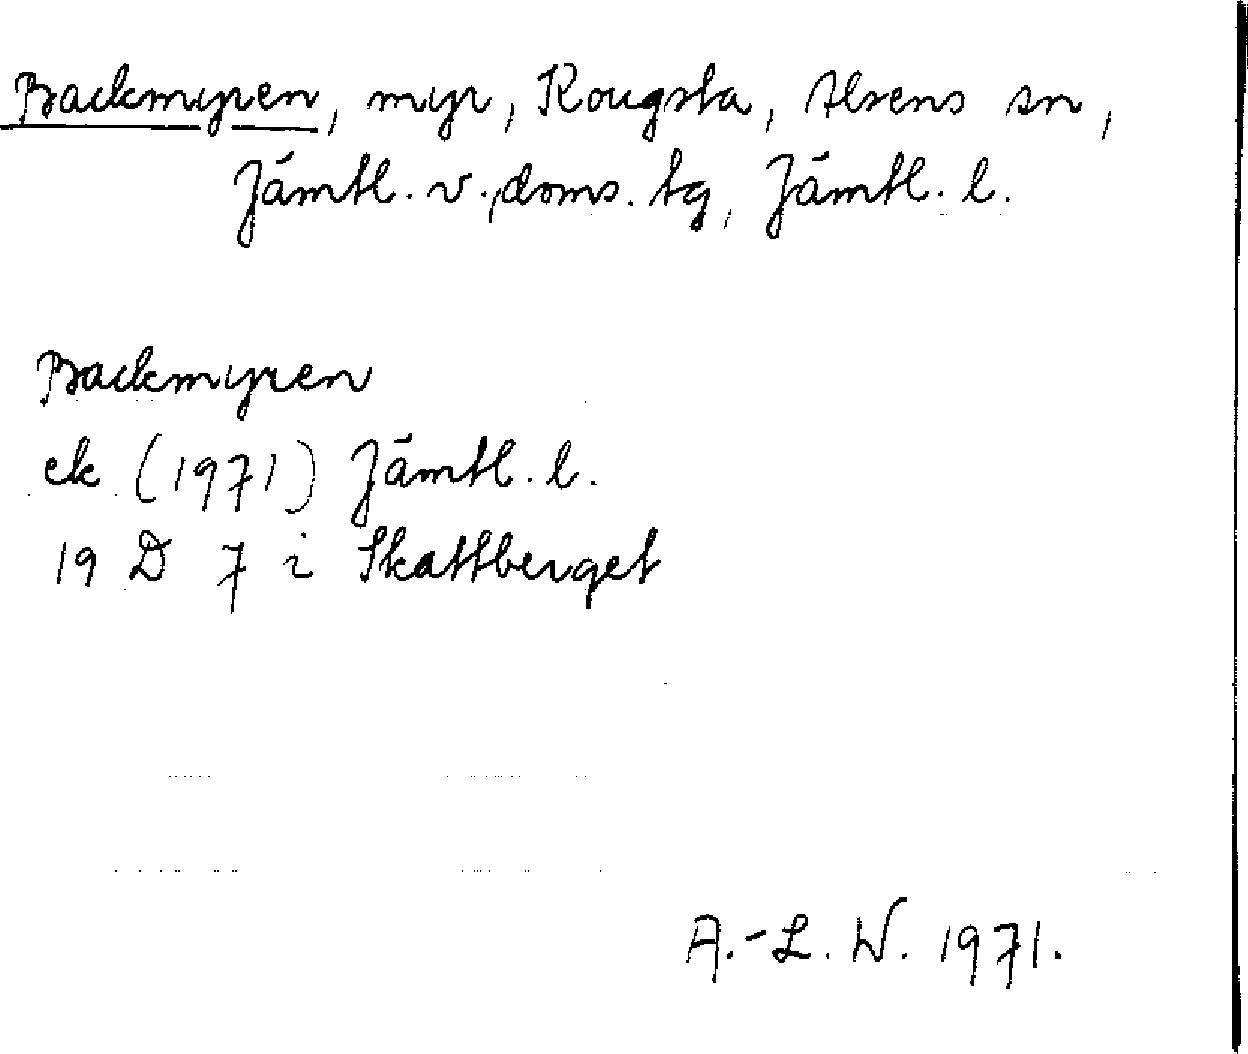 Backmyren, myr, Kougsta, Alsens sn,
Jämtl. v. doms. tg, Jämtl. l.
Backmyren
ek (1971) Jämtl. l.
19 D 7 i Skattberget
A.-L. W. 1971.